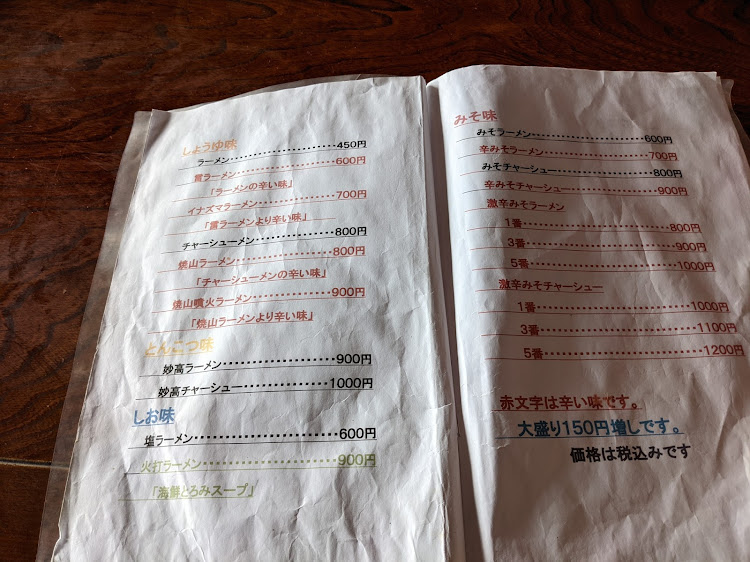 しょうゆ味
ラーメン・・・・・・・・・・・・・・・・450円
雷ラーメン・・・・・・・・・・・・・・600円
「ラーメンの辛い味」
イナズマラーメン・・・・・・・・・・700円
「雷ラーメンより辛い味」
チャーシューメン・・・・・・・・・・800円
焼山ラーメン・・・・・・・・・・・・800円
「チャーシューメンの辛い味」
焼山噴火ラーメン・・・・・・・・900円
「焼山ラーメンより辛い味」
とんこつ味
妙高ラーメン・・・・・・・・・・・・900円
妙高チャーシュー・・・・・・・・1000円
しお味
塩ラーメン・・・・・・・・・・・・・・600円
火打ラーメン・・・・・・・・・・・・900円
「海鮮とろみスープ」
みそ味
みそラーメン・・・・・・・・・・・・600円
辛みそラーメン・・・・・・・・・・700円
みそチャーシュー・・・・・・・・800円
辛みそチャーシュー・・・・・・900円
激辛みそラーメン
1番・・・・・・・・・・・・・・・・800円
3番・・・・・・・・・・・・・・・・900円
5番・・・・・・・・・・・・・・・・1000円
激辛みそチャーシュー
1番・・・・・・・・・・・・・・・・1000円
3番・・・・・・・・・・・・・・・・1100円
5番・・・・・・・・・・・・・・・・1200円
赤文字は辛い味です。
大盛り150円増しです。
価格は税込みです